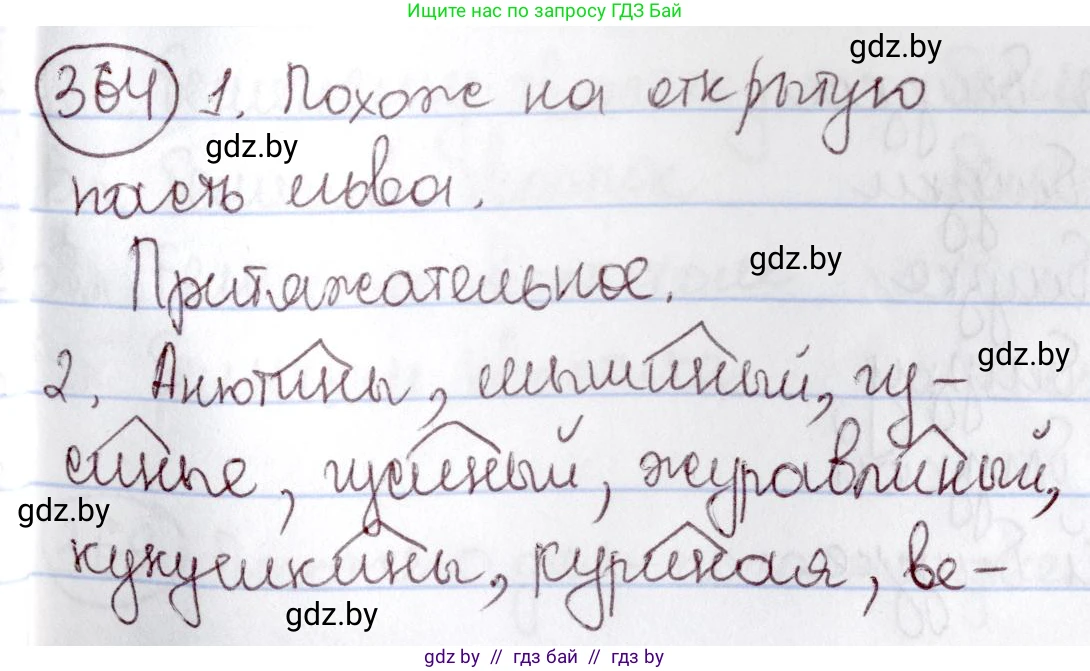 Ищите нас по запросу ГДЗ Бай
gdz.by
364 1. Похоже на открытую
gdz.by
пасть льва.
gdz.by
Притяжательное.
gdz.by
2. Анютины, мышиный, гу-
синые, гусиный, журавлиный,
gdz.by
кукушкины, куриная, ве-
gdz.by
gdz by // гдз бай // гдз by